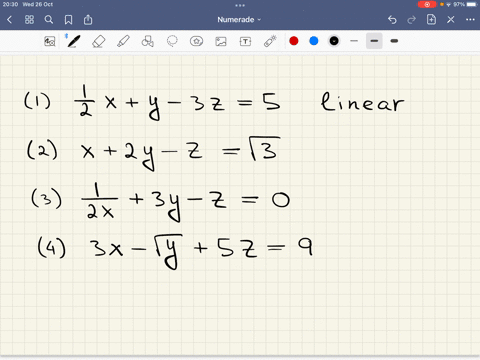 20:30 Wed 26 Oct
97%
Numerade
(1) 1/2 x + y − 3z = 5 linear
(2) x + 2y − z = √3
(3) 1/2x + 3y − z = 0
(4) 3x − √y + 5z = 9